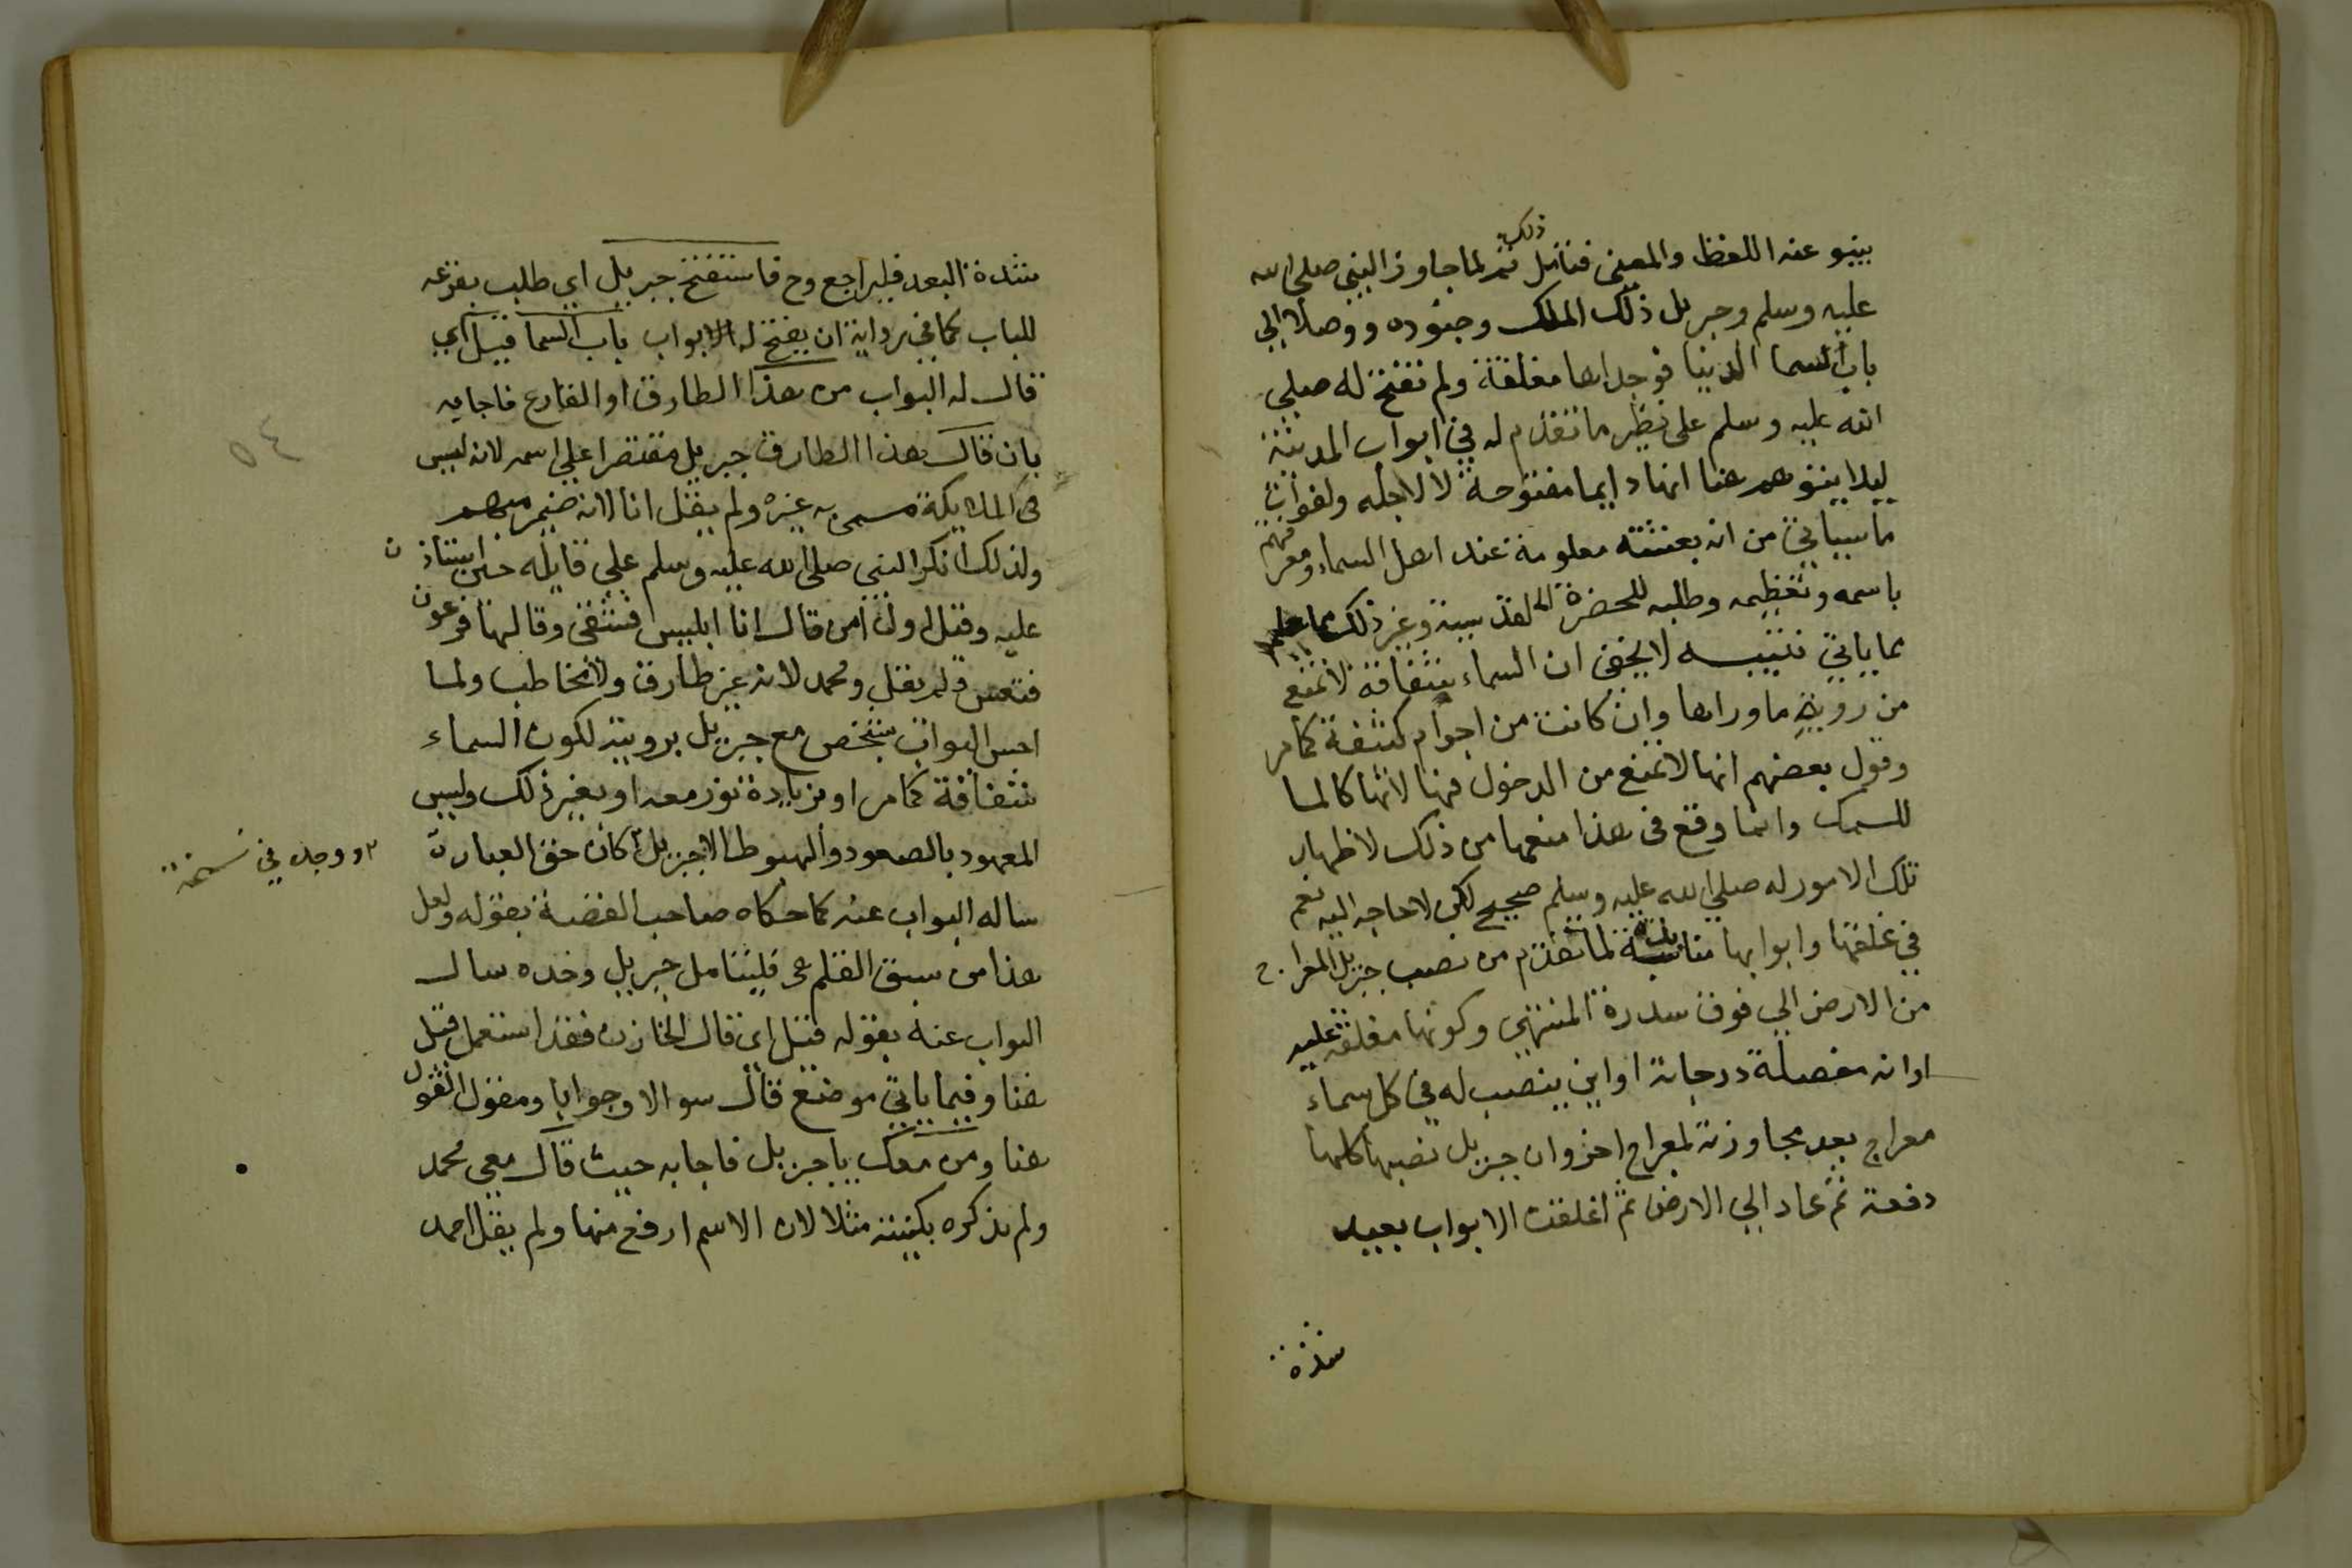 ينبو عنه اللفظ والمعنى فتأمل ذلك ثم لما جاوز النبي صلى الله
عليه وسلم وجبريل ذلك الملك وجنوده ووصلا الي
باب السما الدنيا فوجداها مغلقة ولم تفتح له صلي
الله عليه وسلم على نظير ما تقدم له في ابواب المدينة
ليلا يتوهم هنا انها دايما مفتوحة لا لاجله ولفوات
ما سياتي من ان بعثته معلومة عند اهل السماء ومعرفتهم
باسمه وتعظيمه وطلبه للحضرة القدسية وغير ذلك مما علم
مما ياتي تنبيه لا يخفى ان السماء شفافة لا تمنع
من روية ما وراها وان كانت من اجرام كثيفة كما مر
وقول بعضهم انها لا تمنع من الدخول فيها لانها كالما
للسمك وانما وقع في هذا منعها من ذلك لاظهار
تلك الامور له صلي الله عليه وسلم صحيح لكن لا حاجه اليه نعم
في غلقها وابوابها لما تقدم من نصب جبريل المعراج
من الارض الي فوق سدرة المنتهى وكونها مغلقة عليه
او انه مفصلة درجاته او اين ينصب له في كل سماء
معراج بعد مجاوزته لمعراج اخر وان جبريل نصبها كلها
دفعة ثم عاد الي الارض ثم اغلقت الابواب بعيد
شدة
٥٤
شدة البعد فليراجع وح فاستفتح جبريل اي طلب بقرعه
للباب كما في رواية ان يفتح له الابواب باب السما فقيل اي
قال له البواب من هذا الطارق او القارع فاجابه
بان قال هذا الطارق جبريل مقتصرا علي اسمه لانه ليس
في الملايكة مسمى به غيره ولم يقل انا لانه ضمير مبهم
ولذلك انكر النبي صلى الله عليه وسلم علي قايله حين استاذن
عليه وقيل اول من قال انا ابليس فشقى وقالها فرعون
فتعس ولم يقل ومحمد لانه غير طارق ولا مخاطب ولما
احس البواب بشخص مع جبريل برويته لكون السماء
شفافة كما مر او بزيادة نور معه او بغير ذلك وليس
المعهود بالصعود والهبوط الا جبريل كان حق العبارة
ووجد في نسخة
ساله البواب عنه كما حكاه صاحب القصة بقوله ولعل
هذا من سبق القلم فليتامل جبريل وحده سال
البواب عنه بقوله قيل اى قال الخازن فقد استعمل قيل
هنا وفيما ياتي موضع قال سوالا وجوابا ومقول القول
هنا ومن معك يا جبريل فاجابه حيث قال معي محمد
ولم يذكره بكنيته مثلا لان الاسم ارفع منها ولم يقل احمد